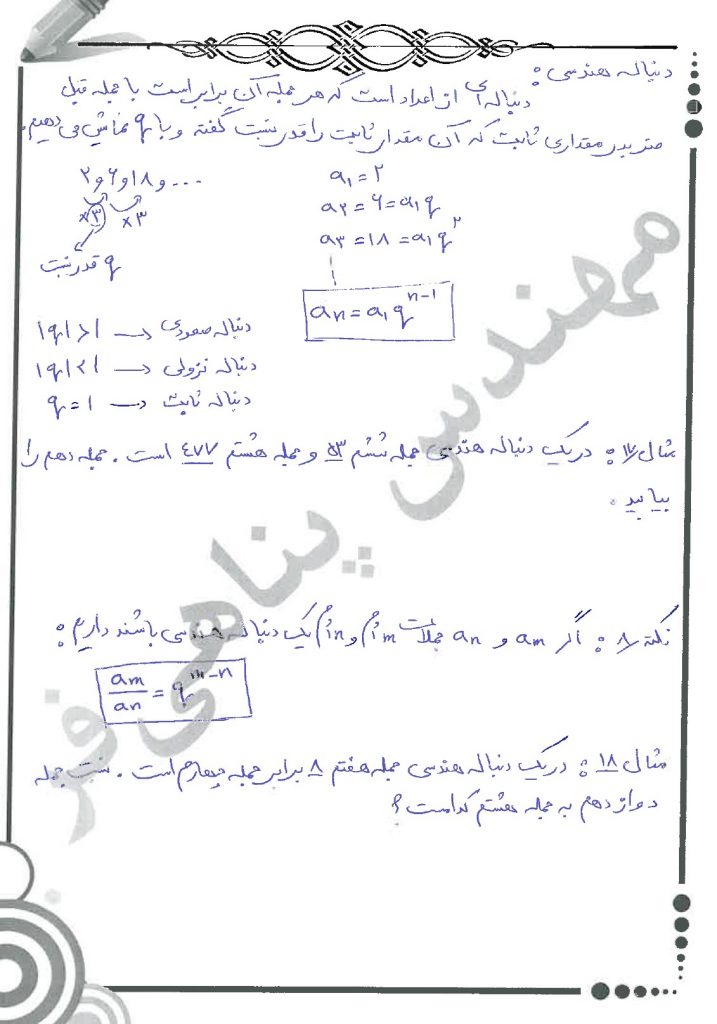 دنباله هندسی :
دنباله ای از اعداد است که هر جمله آن برابر است با جمله قبل
ضربدر مقداری ثابت که آن مقدار ثابت را قدر نسبت گفته و با q نمایش می دهیم.
۲و۶و۱۸و...
×۳ ×۳
q قدر نسبت
a₁ = ۲
a۲ = ۶ = a₁q
a۳ = ۱۸ = a₁q^۲
an = a₁q^n-1
دنباله صعودی → |q|>1
دنباله نزولی → |q|<1
دنباله ثابت → q=1
مثال ۱۷: در یک دنباله هندسی جمله ششم ۵۳ و جمله هشتم ۴۷۷ است. جمله دهم را
بیابید.
نکته ۸: اگر am و an جملات mاُم و nاُم یک دنباله هندسی باشند داریم:
am/an = q^m-n
مثال ۱۸: در یک دنباله هندسی جمله هفتم ۸ برابر جمله چهارم است. نسبت جمله
دوازدهم به جمله هشتم کدامست؟
مهندس پناهی فر